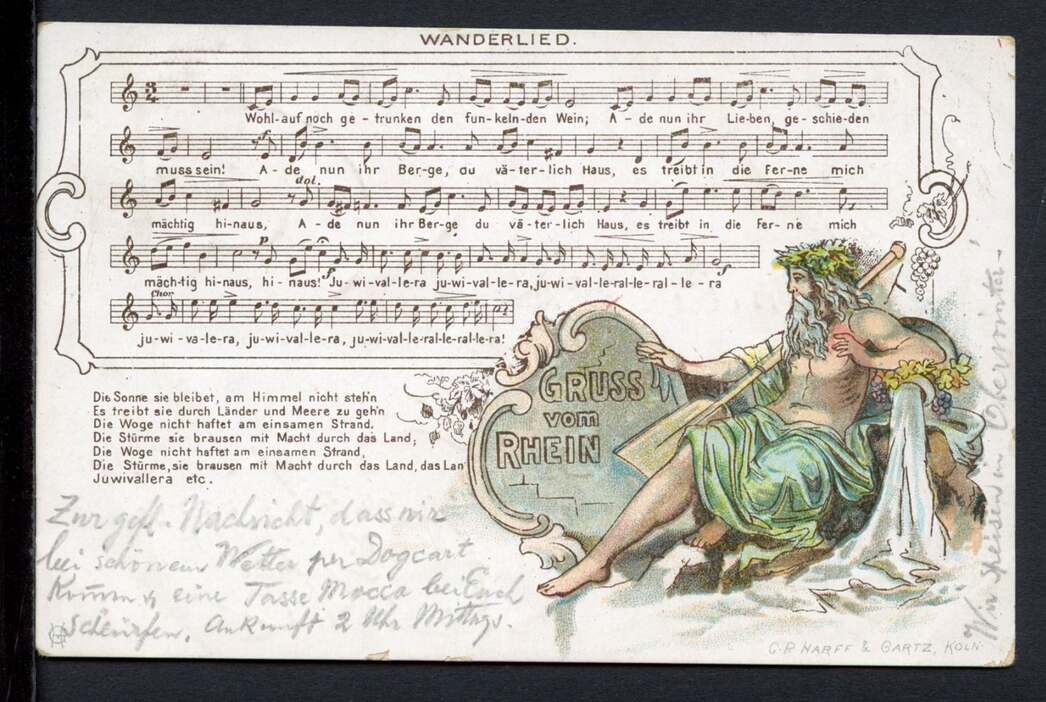 WANDERLIED.
Wohl-auf noch ge-trunken den fun-keln-den Wein; A-de nun ihr Lie-ben, ge-schie-den
muss sein! A-de nun ihr Ber-ge, du vä-ter-lich Haus, es treibt in die Fer-ne mich
dol.
mächtig hi-naus, A-de nun ihr Ber-ge du vä-ter-lich Haus, es treibt in die Fer-ne mich
p
mäch-tig hi-naus, hi-naus! Ju-wi-val-le-ra ju-wi-val-le-ra, ju-wi-val-le-ral-le-ral-le-ra
Chor
ju-wi-va-le-ra, ju-wi-val-le-ra, ju-wi-val-le-ral-le-ral-le-ra!
Die Sonne sie bleibet, am Himmel nicht steh'n
Es treibt sie durch Länder und Meere zu geh'n
Die Woge nicht haftet am einsamen Strand.
Die Stürme sie brausen mit Macht durch das Land;
Die Woge nicht haftet am einsamen Strand,
Die Stürme, sie brausen mit Macht durch das Land, das Lan
Juwivallera etc.
GRUSS
VOM
RHEIN
Zur gefl. Nachricht, dass wir
bei schönem Wetter per Dogcart
eine Tasse Mocca bei Euch
schlürfen. Ankunft 2 Uhr Mittags.
Wir speisen in Oberwinter.
C.P. HARFF & GARTZ, KÖLN.